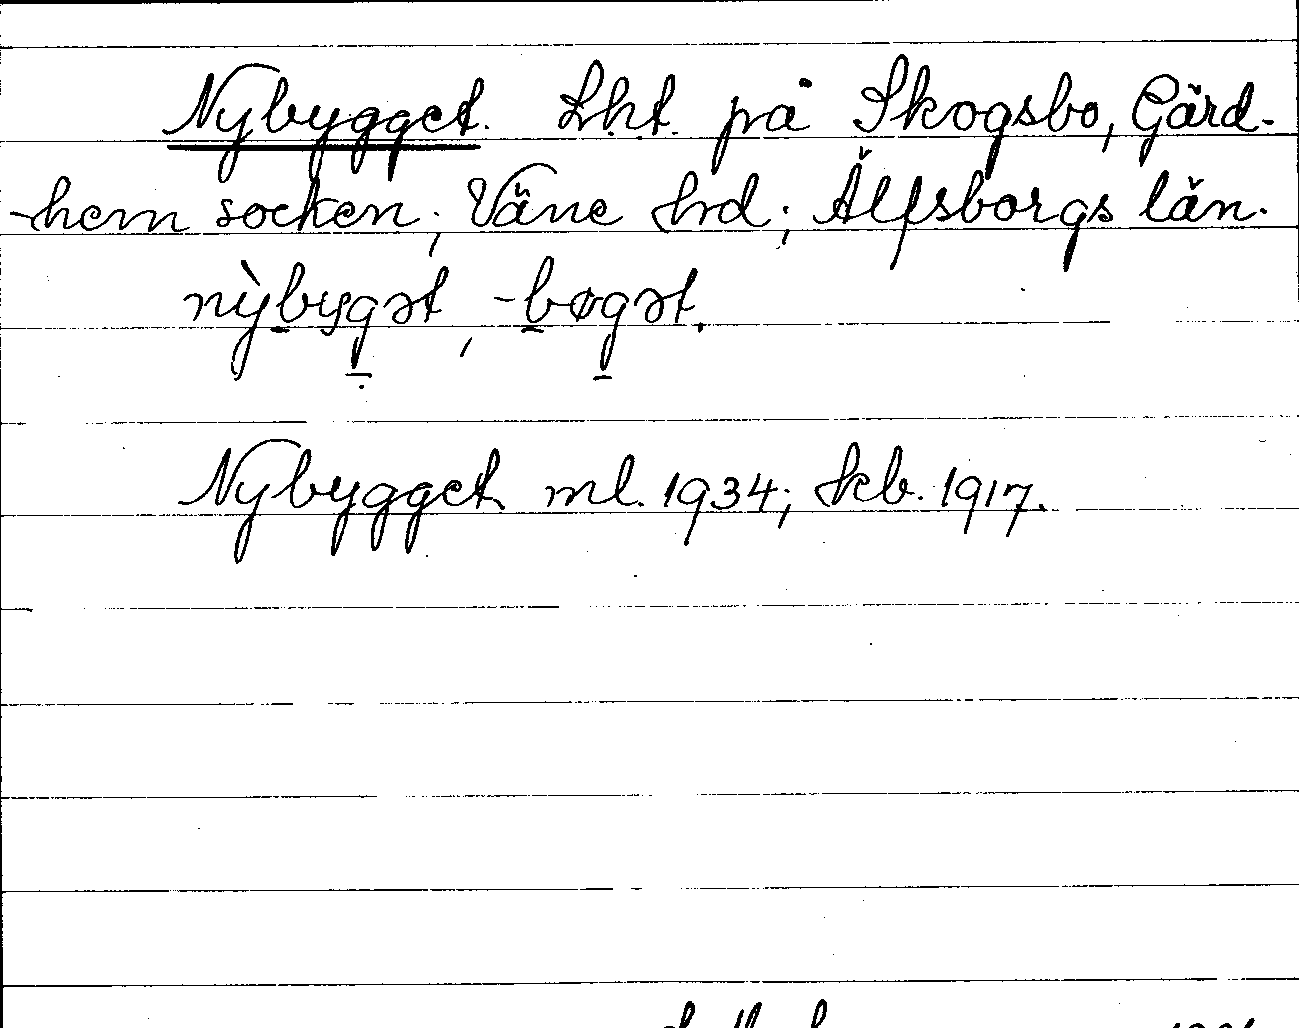 Nybygget. Lht. på Skogsbo, Gärd-
hem socken; Väne hrd; Älfsborgs län.
nỳbygət, -bøgət.
Nybygget ml. 1934; kb. 1917.